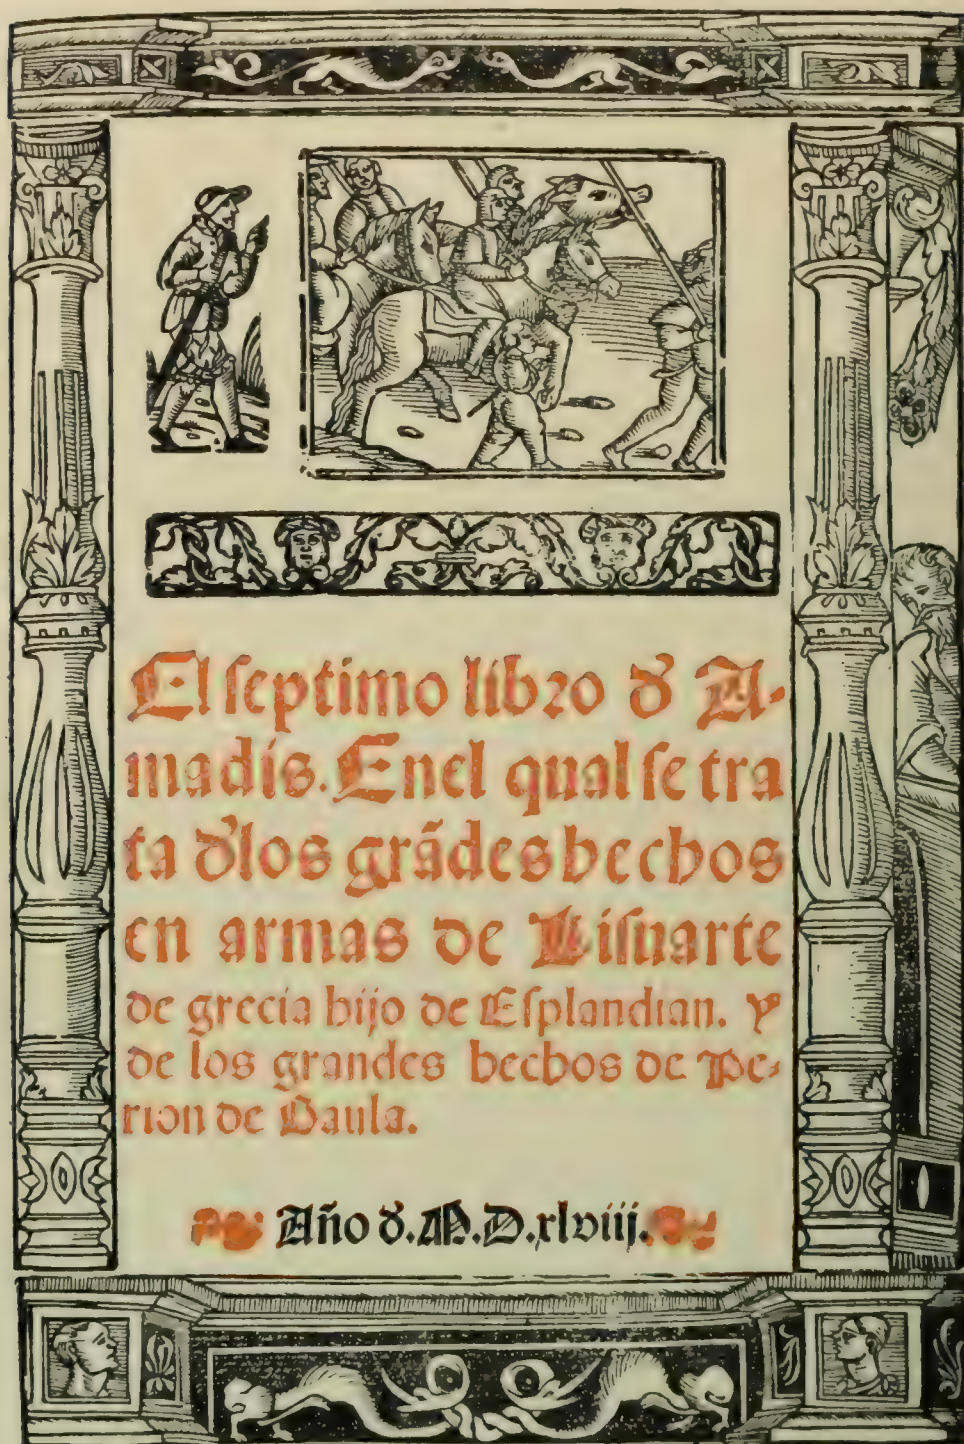 El ſeptimo libro ẟ A-
madis. Enel qual ſe tra
ta ẟ'los grãdes hechos
en armas de Liſuarte
de grecia hijo de Eſplandian. Y
de los grandes hechos de Pe-
rion de Gaula.
Año ẟ.M.D.xlviij.